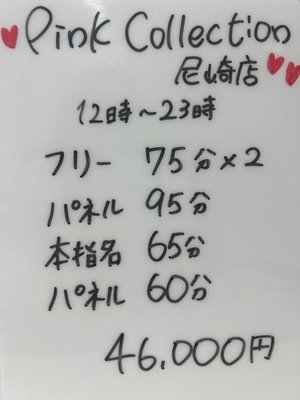 Pink Collection
尼崎店
12時～23時
フリー 75分×2
パネル 95分
本指名 65分
パネル 60分
46,000円